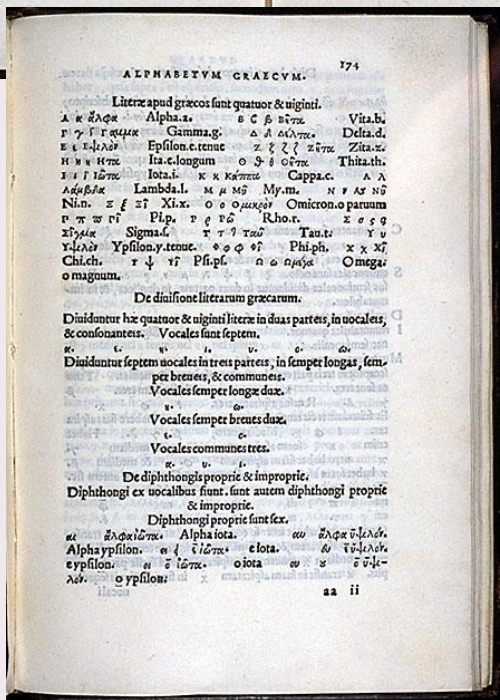 174
ALPHABETVM GRAECVM.
Literæ apud græcos sunt quatuor & uiginti.
Α α ἄλφα Alpha.a. Β β βῆτα Vita.b.
Γ γ γάμμα Gamma.g. Δ δ δέλτα. Delta.d.
Ε ε ἒψιλόν Epsilon.e.tenue Ζ ζ ζῆτα Zita.z.
Η η ἦτα Ita.e.longum Θ ϑ θ θῆτα Thita.th.
Ι ι ἰῶτα Iota.i. Κ κ κάππα Cappa.c. Λ λ
λάμβδα Lambda.l. Μ μ μῦ My.m. Ν ν νῦ
Ni.n. Ξ ξ ξῖ Xi.x. Ο ο ὀμικρόν Omicron.o paruum
Γ π ϖ πῖ Pi.p. Ρ ρ ῥῶ Rho.r. Σ σ ς
σίγμα Sigma.s. Τ τ ταῦ Tau.t. Υ υ
ὐψιλόν Ypsilon.y.tenue. Φ φ φῖ Phi.ph. Χ χ χῖ
Chi.ch. Ψ ψ ψῖ Psi.ps. Ω ω ὠμέγα Omega.
o magnum.
De diuisione literarum græcarum.
Diuiduntur hæ quatuor & uiginti literæ in duas parteis, in uocaleis,
& consonanteis. Vocales sunt septem.
α. ε. η. ι. υ. ο. ω.
Diuiduntur septem uocales in treis parteis, in semper longas, sem-
per breueis, & communeis.
Vocales semper longæ duæ.
η. ω.
Vocales semper breues duæ.
ε. ο.
Vocales communes tres.
α. υ. ι.
De diphthongis proprie & improprie.
Diphthongi ex uocalibus fiunt. sunt autem diphthongi proprie
& improprie.
Diphthongi proprie sunt sex.
αι ἄλφα ἰῶτα. Alpha iota. αυ ἄλφα ὔψιλόν.
Alpha ypsilon. ει ἰῶτα. e iota. ευ ὔψιλόν.
e ypsilon. οι ὂ ἰῶτα. o iota ου ὂ ὔψι-
λόν. o ypsilon.
aa ii